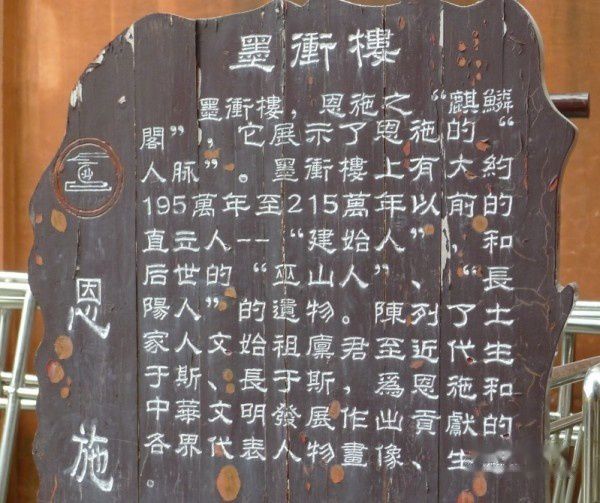 墨衝樓
墨衝樓，恩施之“麒鱗
閣”，它展示了恩施的“
人脈”。墨衝樓上有大約
195萬年至215萬年以前的
直立人--“建始人”，和
后世人的“巫山人”、“長
陽人”的遺物。陳列了土
家人文始祖廩君，至近代生
于斯、長于斯，爲恩施和
中華文明發展作出貢獻的
各界代表人物畫像、生
。
恩施